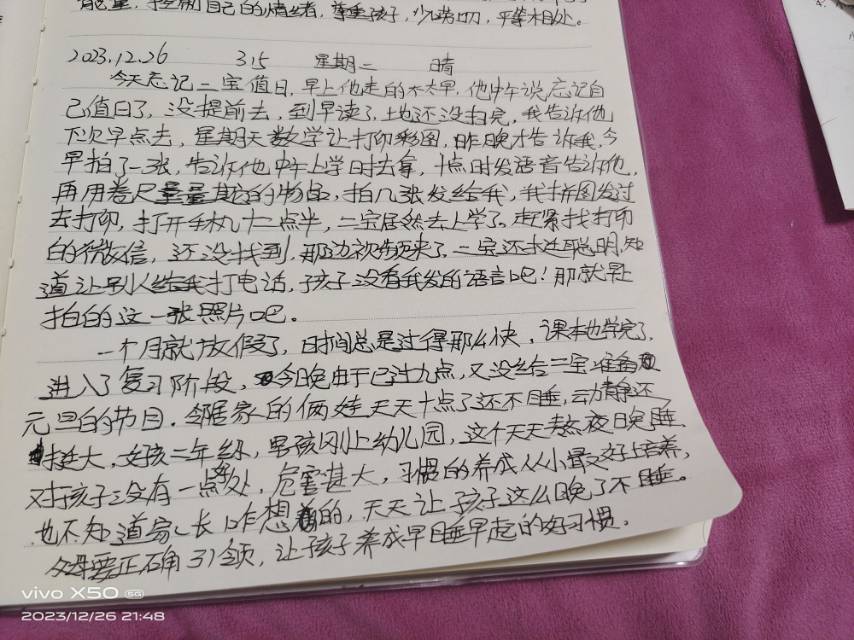 能量，控制自己的情绪，尊重孩子，少唠叨，平等相处。
2023.12.26 315 星期二 晴
今天忘记二宝值日，早上他走的不太早，他中午说忘记自
己值日了，没提前去，到早读了，土也还没扫完，我告诉他
下次早点去，星期天数学让打印彩图，昨晚才告诉我，今
早拍了一张，告诉他中午上学时去拿，十点时发语音告诉他，
再用卷尺量量其它的物品，拍几张发给我，我拼图发过
去打印，打开手机十二点半，二宝居然去上学了，赶紧找打印
的微信，还没找到，那边视频来了，二宝还挺聪明，知
道让别人给我打电话，孩子没看我发的语言吧！那就早上
拍的这一张照片吧。
一个月就放假了，时间总是过得那么快，课本也学完了，
进入了复习阶段，今晚由于已过九点，又没给二宝准备
元旦的节目，邻居家的俩娃天天十点了还不睡，动静还
挺大，女孩二年级，男孩刚上幼儿园，这个天天熬夜晚睡
对孩子没有一点好处，危害甚大，习惯的养成从小最好培养，
也不知道家长咋想的，天天让孩子这么晚了不睡。
父母要正确引领，让孩子养成早睡早起的好习惯。
vivo X50 5G
2023/12/26 21:48